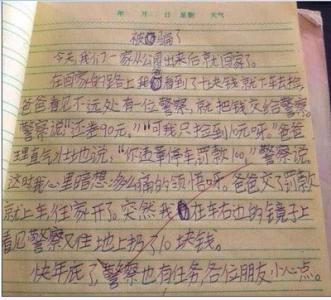 年 月 日 星期 天气
被骗!
今天,我们一家从公园出来后就回家了。
在回家的路上我看到了十块钱,就下车去捡,
爸爸看见不远处有一位警察,就把钱交给警察。
警察说“还差90元,”“可我只捡到10元呀。”爸爸
理直气壮地说,“你违章停车罚款100,”警察说。
这时我心里暗想:多么痛的领悟呀。爸爸交了罚款
就上车往家开了。突然我在车右边的镜子上
看见警察又往地上扔了10块钱。
快年底了,警察也有任务,各位朋友小心点。